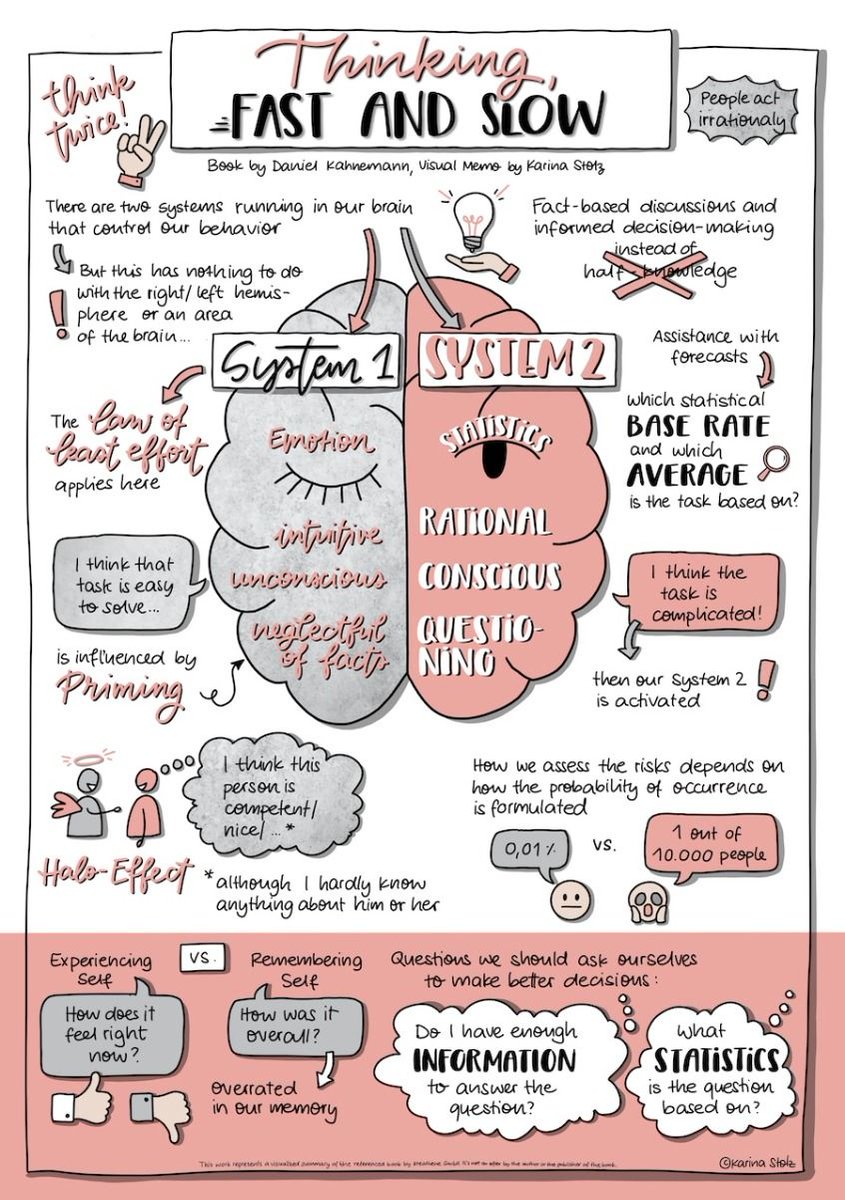 think
twice!
Thinking,
FAST AND SLOW
People act
irrationaly
Book by Daniel Kahnemann, Visual Memo by Karina Stolz
There are two systems running in our brain
that control our behavior
But this has nothing to do
with the right/left hemis-
phere or an area
of the brain...
Fact-based discussions and
informed decision-making
instead of
half-knowledge
System 1
SYSTEM 2
The law of
least effort
applies here
Assistance with
forecasts
which statistical
BASE RATE
and which
AVERAGE
is the task based on?
Emotion
intuitive
unconscious
neglectful
of facts
STATISTICS
RATIONAL
CONSCIOUS
QUESTIO-
NING
I think that
task is easy
to solve...
is influenced by
Priming
I think the
task is
complicated!
then our System 2
is activated
I think this
person is
competent/
nice/...*
Halo-Effect
*although I hardly know
anything about him or her
How we assess the risks depends on
how the probability of occurrence
is formulated
0,01%
vs.
1 out of
10.000 people
Experiencing
Self
VS.
Remembering
Self
How does it
feel right
now?
How was it
overall?
overrated
in our memory
Questions we should ask ourselves
to make better decisions:
Do I have enough
INFORMATION
to answer the
question?
What
STATISTICS
is the question
based on?
This work represents a visualized summary of the referenced book by kreatheine GmbH. It's not an offer by the author or the publisher of the book.
©Karina Stolz